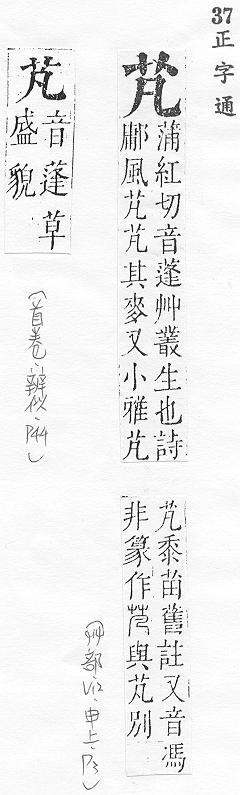 37
正字通
芃
蒲紅切音蓬艸叢生也詩
鄘風芃芃其麥又小雅芃
芃黍苗舊註又音馮
非篆作與芃別
(艸部·V12·申上·P3)
芃
音蓬草
盛貌
(首卷·辨似·P44)